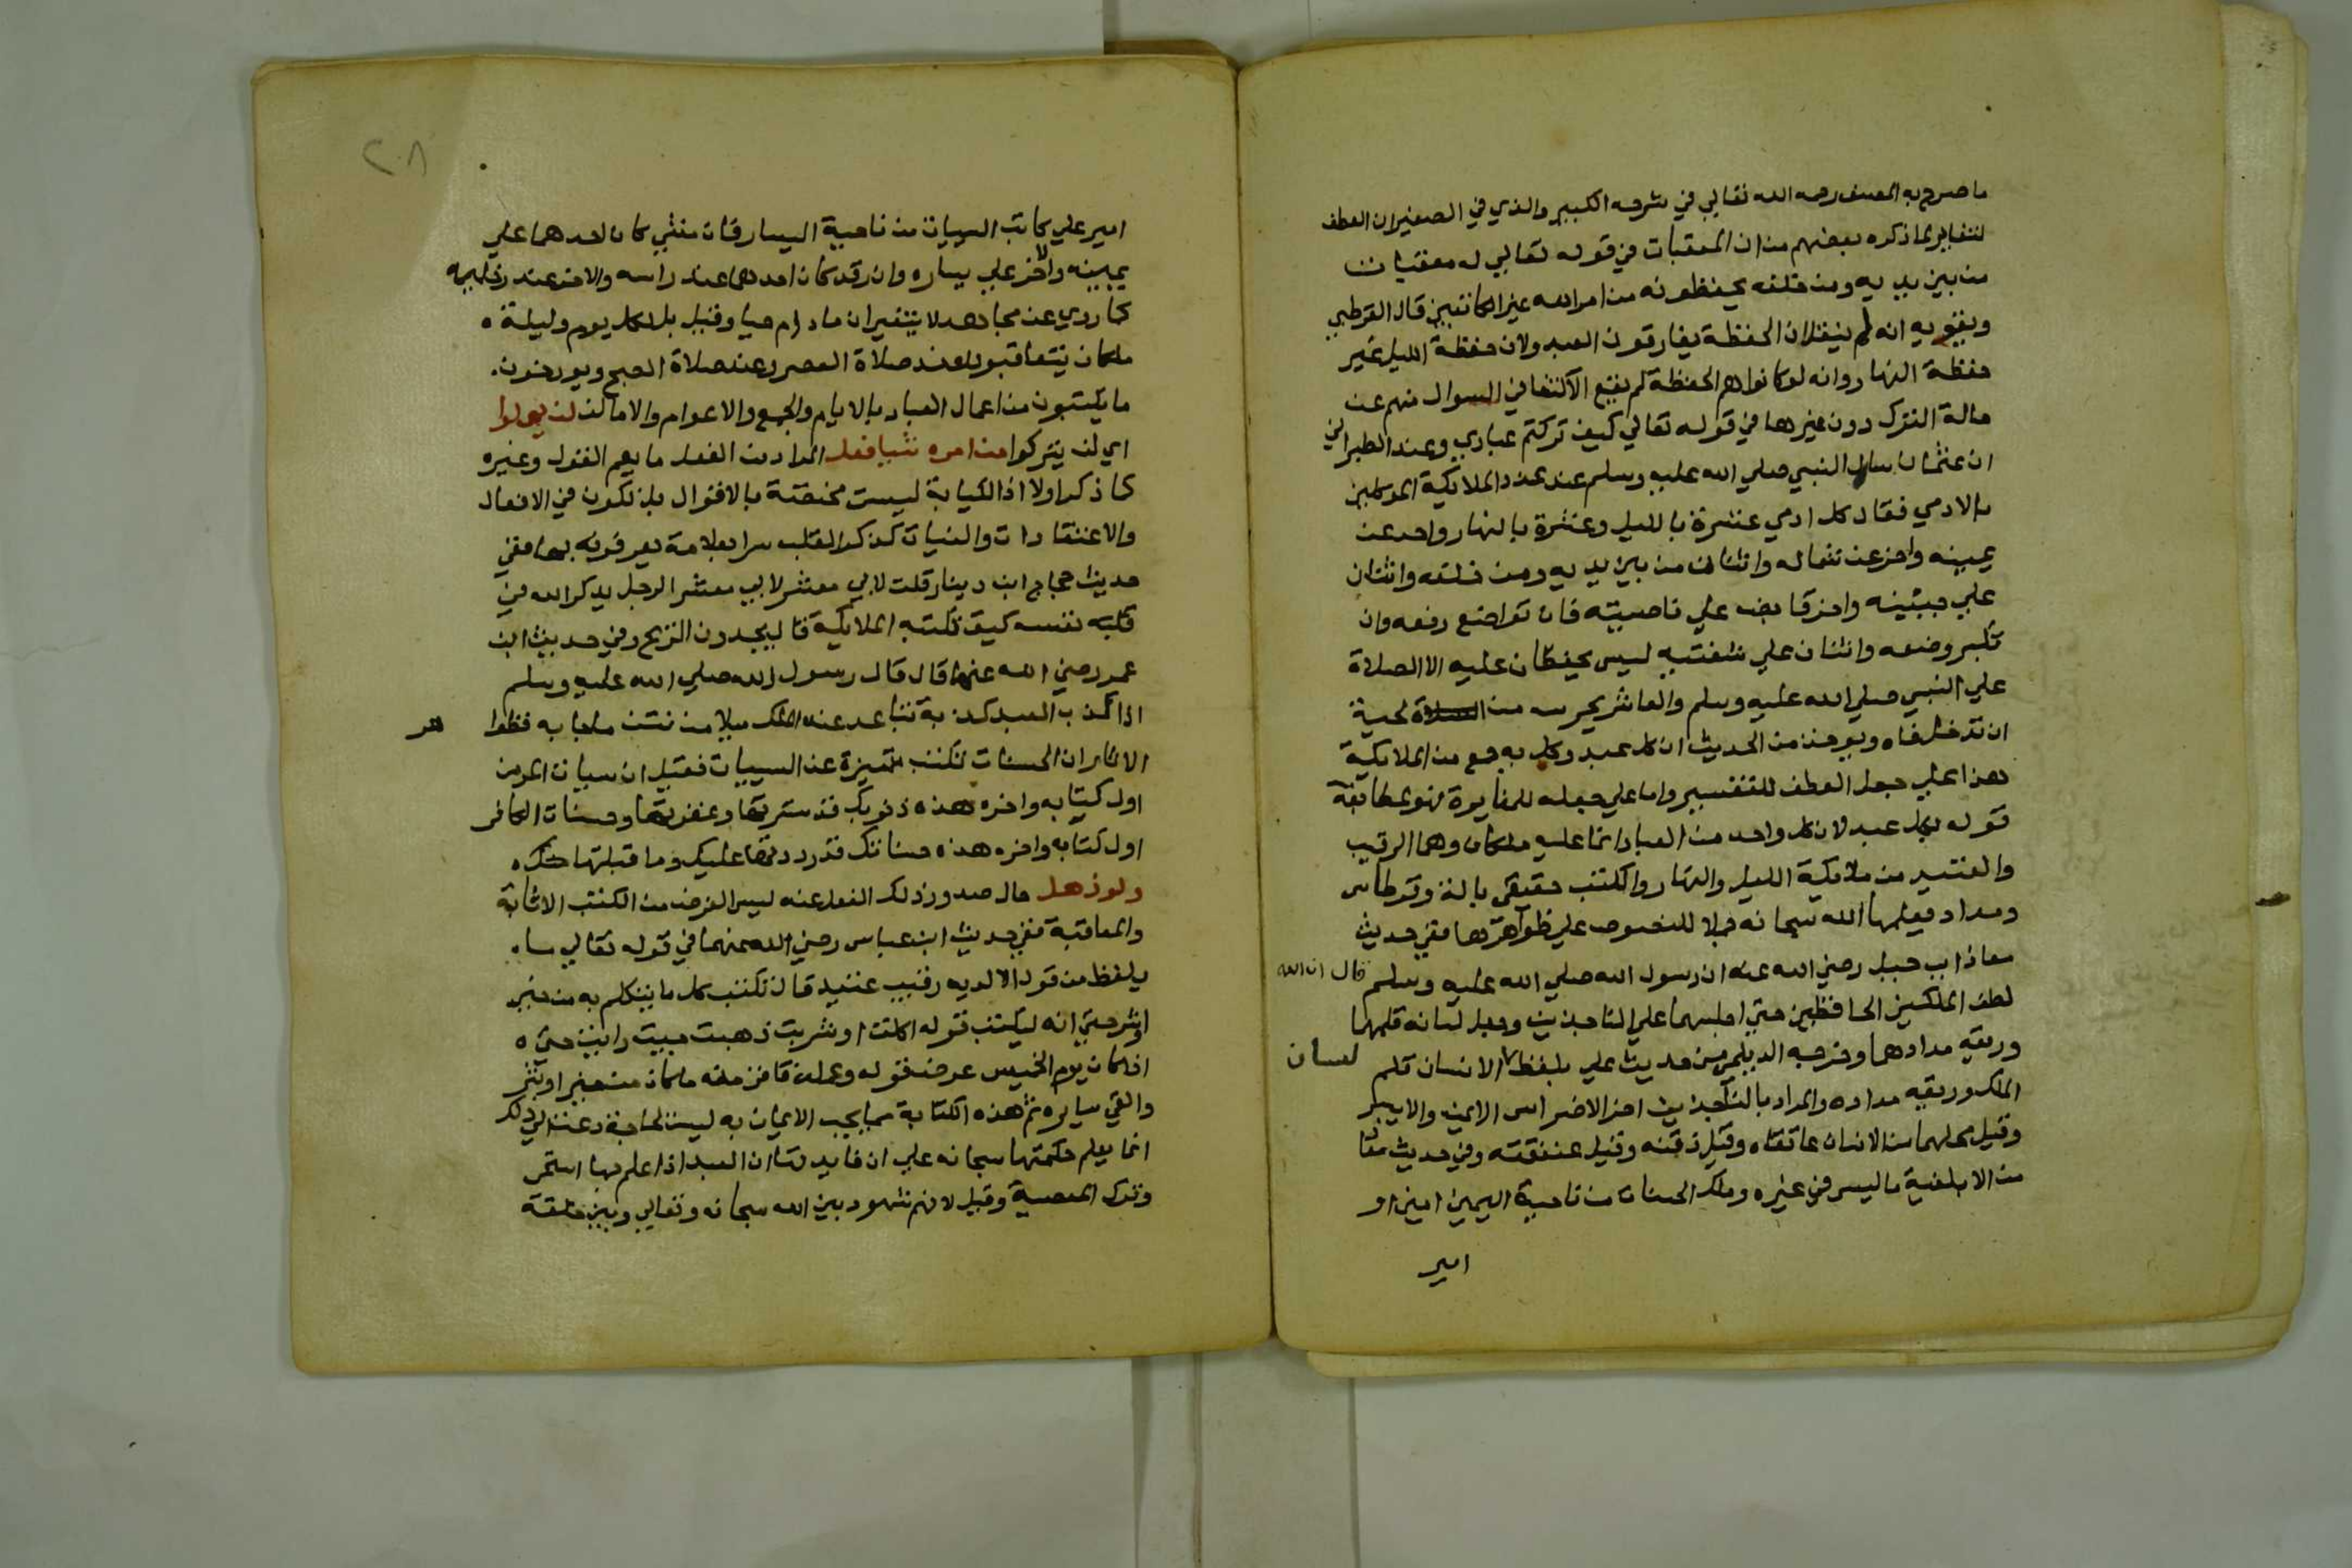 ما صرح به المصنف رحمه الله تعالي في شرحه الكبير والذي في الصغير ان العطف
للتغاير لما ذكره بعضهم من ان المعقبات في قوله تعالي له معقبات
من بين يديه ومن خلفه يحفظونه من امر الله غير الكاتبين قال القرطبي
ويقويه انه لم ينقل ان الحفظة يفارقون العبد ولان حفظة الليل غير
حفظة النهار وانه لو كانوا هم الحفظة لم يقع الاكتفا في السوال منهم عن
حالة الترك دون غيرها في قوله تعالي كيف تركتم عبادي وعند الطبراني
ان عثمان سال النبي صلي الله عليه وسلم عن عدد الملايكة الموكلين
بالادمي فقال كل ادمي عشرة بالليل وعشرة بالنهار واحد عن
يمينه واخر عن شماله واثنان من بين يديه ومن خلفه واثنان
علي جبينه واخر قابض علي ناصيته فان تواضع رفعه وان
تكبر وضعه واثنان علي شفتيه ليس يحفظان عليه الا الصلاة
علي النبي صلي الله عليه وسلم والعاشر يحرسه من الحية
ان تدخل فاه ويوخذ من الحديث ان كل عبد وكل به جمع من الملايكة
هذا علي جعل العطف للتفسير واما علي جعله للمغايرة فهو مطابقة
قوله بكل عبد لان كل واحد من العباد انما عليه ملكان وهما الرقيب
والعتيد من ملايكة الليل والنهار والكتب حقيقي بالة وقرطاس
ومداد يعلمها الله سبحانه حملا للنصوص علي ظواهرها ففي حديث
معاذ ابن جبل رضي الله عنه ان رسول الله صلي الله عليه وسلم قال ان الله
لطف الملكين الحافظين حتي اجلسهما علي الناجذين وجعل لسانه قلمهما
وريقه مدادهما وخرجه الديلمي من حديث علي بلفظ لسان الانسان قلم
الملك وريقه مداده والمراد بالناجذين اخر الاضراس الايمن والايسر
وقيل محلهما من الانسان عاتقاه وقيل ذقنه وقيل عنفقته وفي حديث معاذ
من الابلغية ما ليس في غيره وملك الحسنات من ناحية اليمين امين او
امير
٢٠٨
امير علي كاتب السيات من ناحية اليسار فان مشي كان احدهما علي
يمينه والاخر علي يساره وان رقد كان احدهما عند راسه والاخر عند رجليه
كما روي عن مجاهد لا يتغيران مادام حيا وقيل بل لكل يوم وليلة
ملكان يتعاقبون عند صلاة العصر وعند صلاة الصبح ويورخون
ما يكتبون من اعمال العباد بالايام والجمع والاعوام والاماكن لن يهملوا
اي لن يتركوا من امره شيا فعل المراد من الفعل ما يعم القول وغيره
كما ذكر اولا اذ الكتابة ليست مختصة بالاقوال بل تكون في الافعال
والاعتقادات والنيات كذكر القلب سرا بعلامة يعرفونه بها ففي
حديث حجاج ابن دينار قلت لابي معشر الرجل يذكر الله في
قلبه نفسه كيف تكتبه الملايكة قال يجدون الريح وفي حديث ابن
عمر رضي الله عنهما قال قال رسول الله صلي الله عليه وسلم
اذا كذب العبد كذبة تباعد عنه الملك ميلا من نتن ما جا به
ان الحسنات تكتب متميزة عن السيات فقيل ان سيات المومن
اول كتابه واخره هذه ذنوبك قد سترتها وغفرتها وحسنات الكافر
اول كتابه واخره هذه حسناتك قد رددتها عليك وما قبلتها منك
ولو ذهل حال صدور ذلك الفعل عنه ليس الغرض من الكتب الاثابة
والمعاقبة ففي حديث ابن عباس رضي الله عنهما في قوله تعالي ما
يلفظ من قول الا لديه رقيب عتيد قال تكتب كل ما يتكلم به من خير
او شر حتي انه ليكتب قوله اكلت او شربت ذهبت جيت رايت حتي
اذا كان يوم الخميس عرض قوله وعمله فاقر منه ما كان من خير او شر
والقي سايره ثم هذه الكتابة مما يجب الايمان به ليست لحاجة دعت الي ذلك
انما يعلم حكمتها سبحانه علي ان فايدتها ان العبد اذا علم بها استحي
وترك المعصية وقيل لانهم شهود بين الله سبحانه وتعالي وبين خلقه